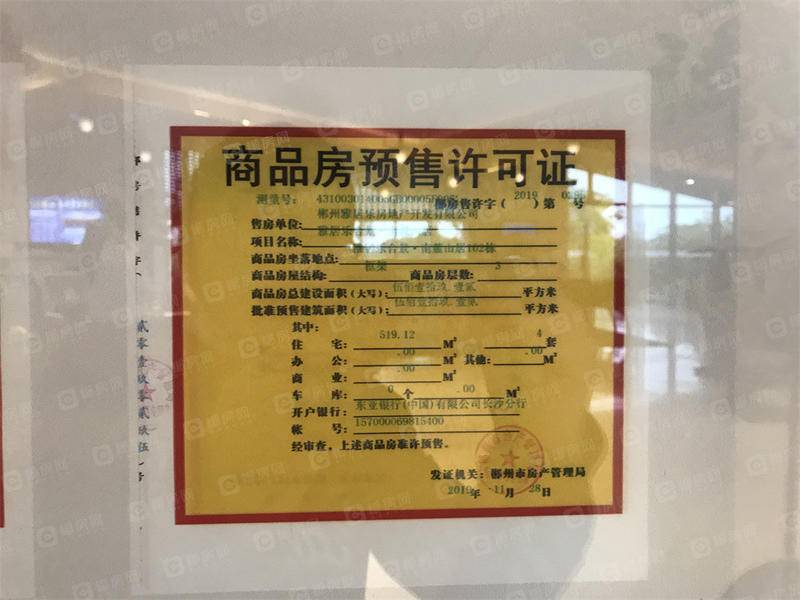 商品房预售许可证
测量号:
郴房售许字( 2019 )第 号
郴州雅居乐房地产开发有限公司
售房单位:
雅居乐
项目名称:
·南麓山居102栋
商品房坐落地点:
框架 3
商品房屋结构: 商品房层数:
伍佰壹拾玖.壹贰
商品房总建设面积(大写): 平方米
伍佰壹拾玖.壹贰
批准预售建筑面积(大写): 平方米
其中:
519.12 4
住 宅: M² 套
.00 .00
办 公: M² 其他: M²
.00
商 业: M²
0 .00
车 库: 个 M²
东亚银行(中国)有限公司长沙分行
开户银行:
157000069815400
帐 号:
经审查,上述商品房准许预售。
发证机关:郴州市房产管理局
2019年 11月 28日
贰零壹玖零贰玖伍号